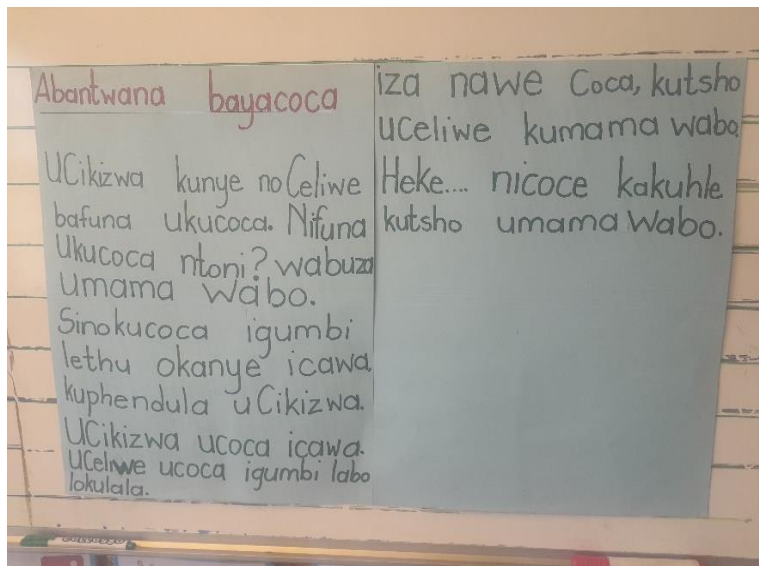 Abantwana bayacoca
UCikizwa kunye noCeliwe
bafuna ukucoca. Nifuna
Ukucoca ntoni? wabuza
umama wabo.
Sinokucoca igumbi
lethu okanye icawa
kuphendula uCikizwa.
UCikizwa ucoca icawa.
UCeliwe ucoca igumbi labo
lokulala.
iza nawe Coca, kutsho
uCeliwe kumama wabo.
Heke.... nicoce kakuhle
kutsho umama Wabo.